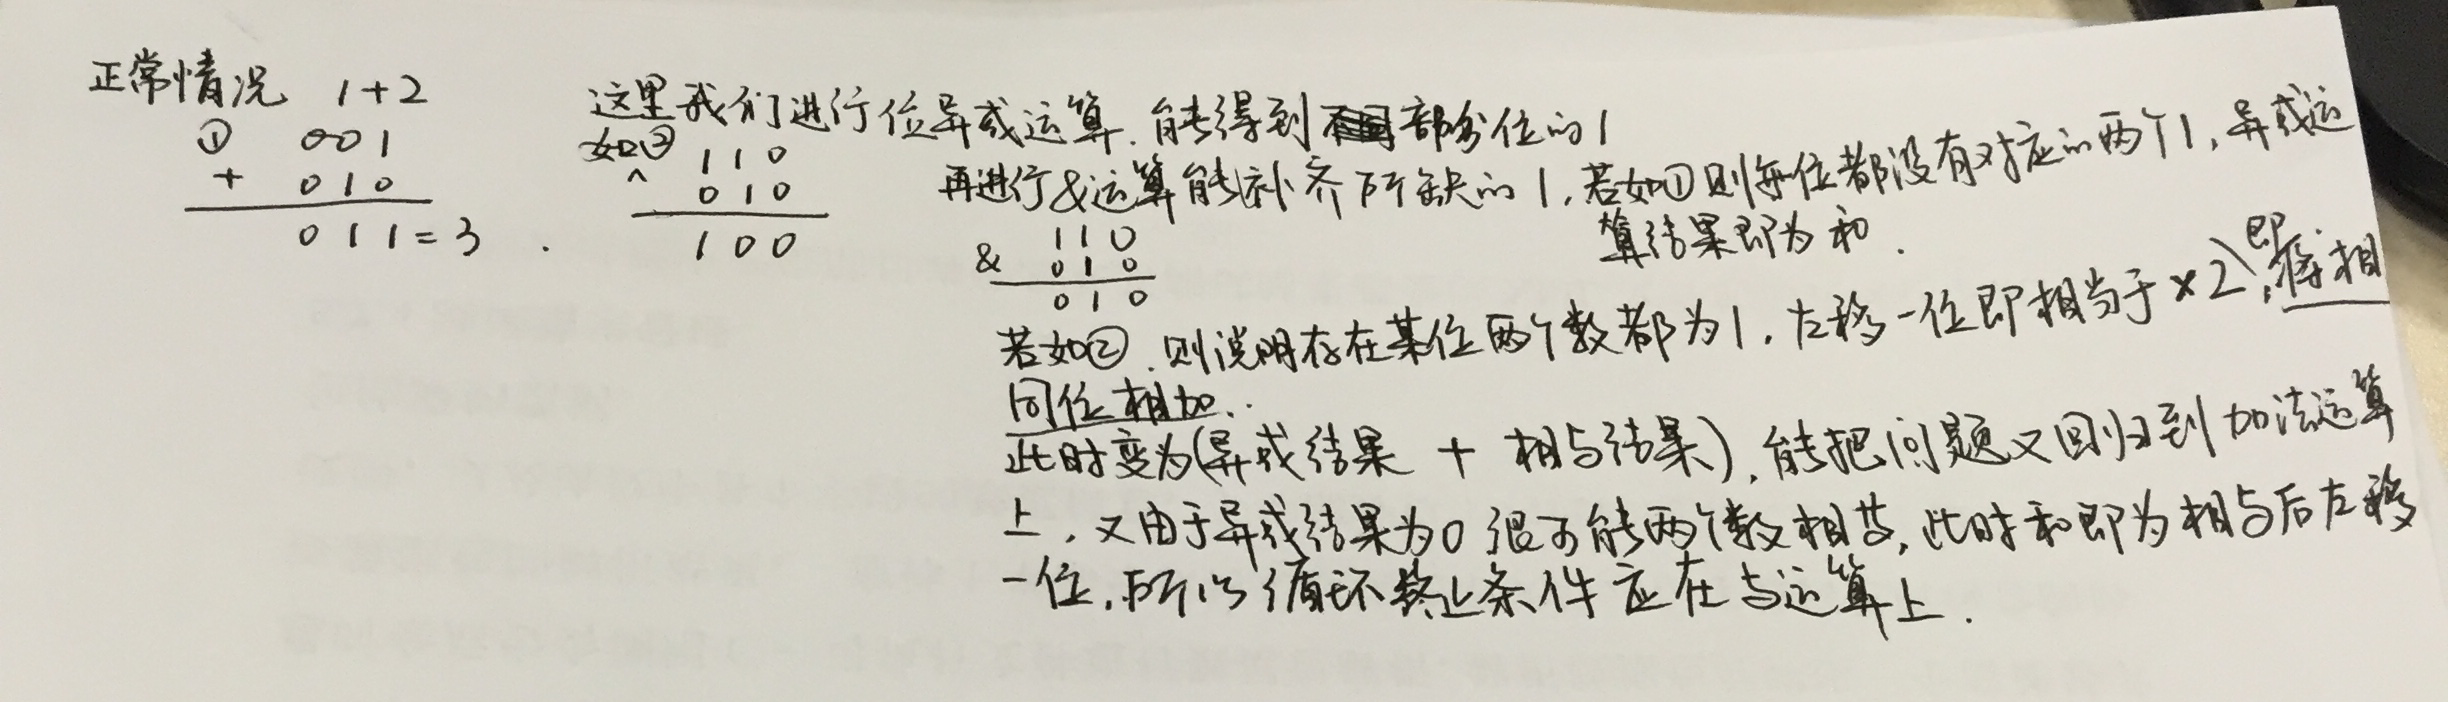 正常情况 1+2
① 001
+ 010
011=3.
这里我们进行位异或运算.能得到部分位的1
如② 110
^ 010
100
再进行&运算能补齐所缺的1,若如①则每位都没有对应的两个1,异或运
算结果即为和.
110
& 010
010
若如②,则说明存在某位两个数都为1.左移一位即相当于×2,即将相
同位相加..
此时变为(异或结果 + 相与结果),能把问题又回归到加法运算
上,又由于异或结果为0很可能两个数相等,此时和即为相与后左移
一位,所以循环终止条件应在与运算上.